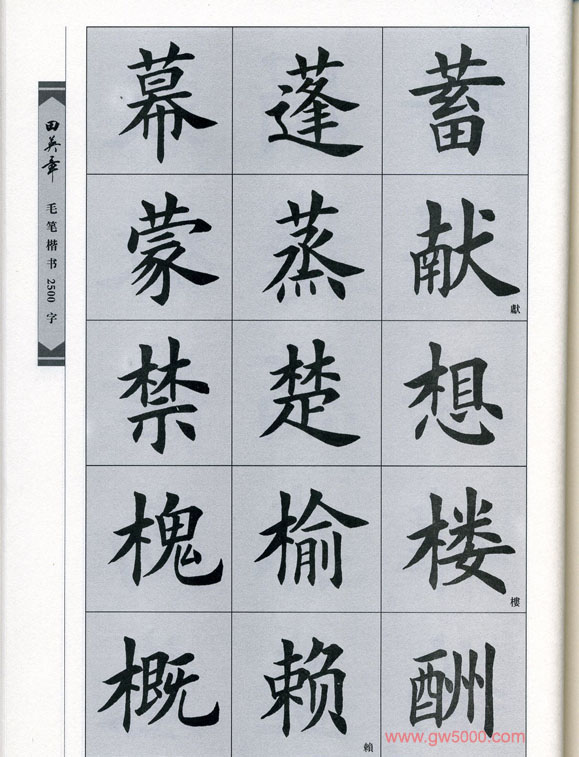 田英章
毛笔楷书 2500 字
幕 蓬 蓄
蒙 蒸 献
獻
禁 楚 想
槐 榆 楼
樓
概 赖 酬
賴
www.gw5000.com